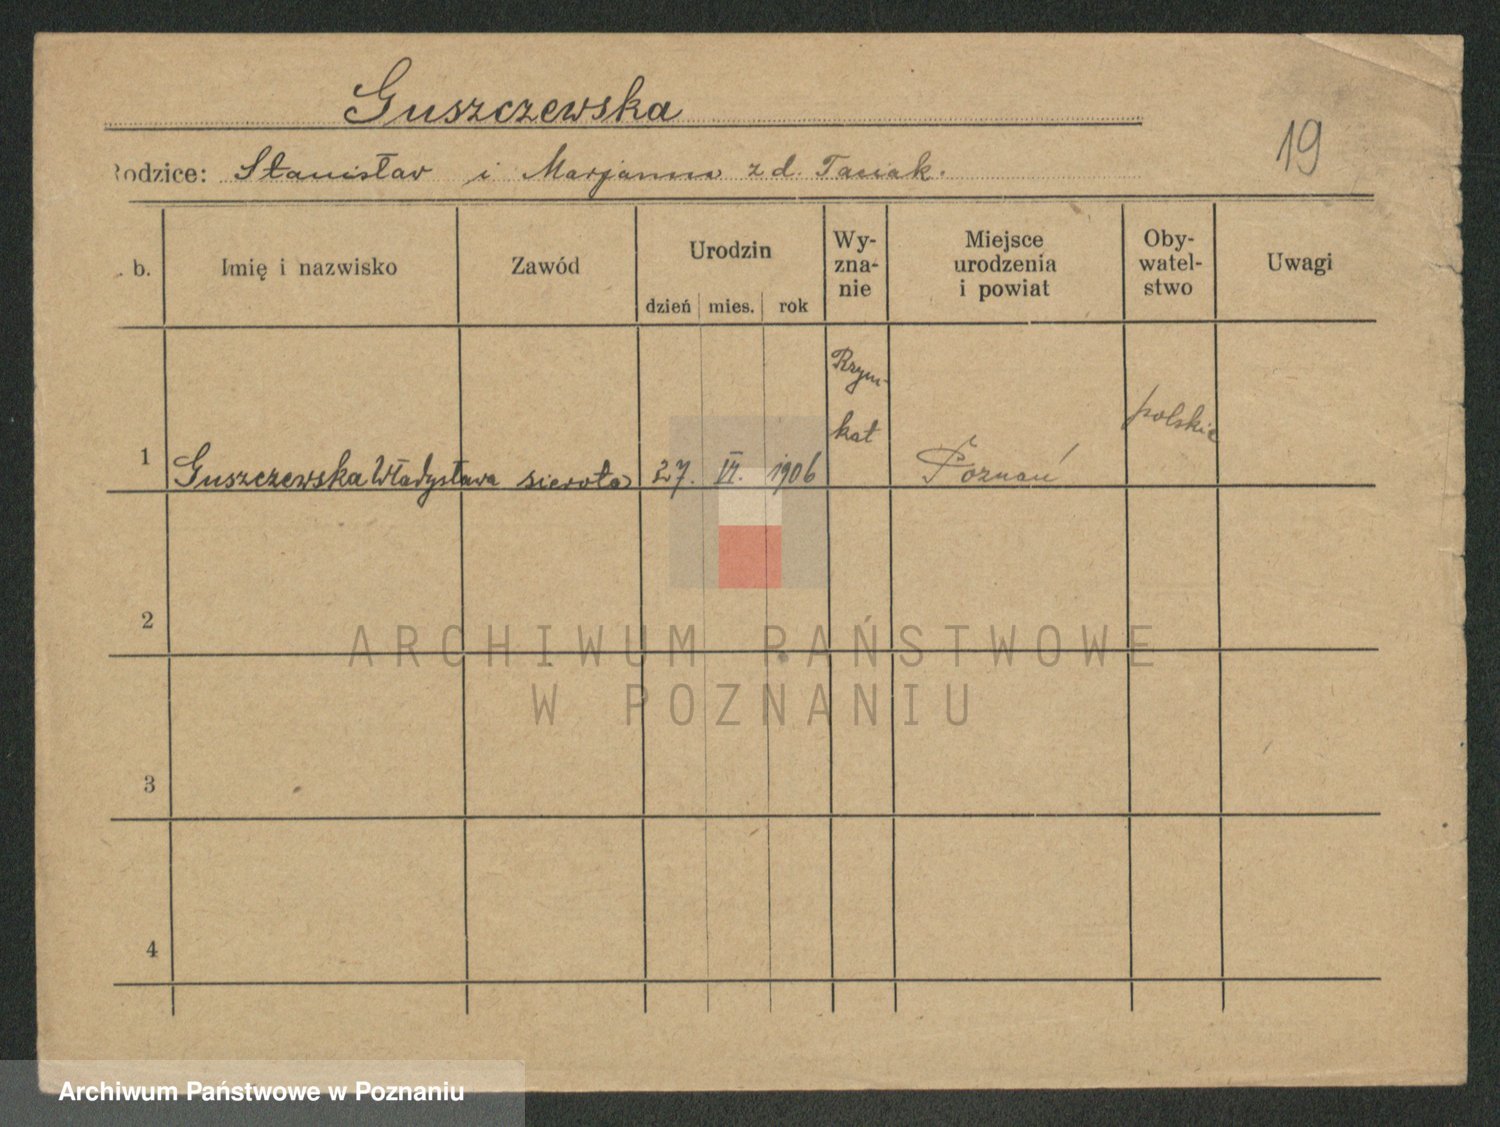 Guszczewska
19
Rodzice: Stanisław i Marjanna z d. Taciak.
. b.
Imię i nazwisko
Zawód
Urodzin
dzień mies. rok
Wy-
zna-
nie
Miejsce
urodzenia
i powiat
Oby-
watel-
stwo
Uwagi
1 Guszczewska Władysława sierota 27. VI. 1906
Rzym-
kat
Poznań
polskie
2
3
4
ARCHIWUM PAŃSTWOWE
W POZNANIU
Archiwum Państwowe w Poznaniu